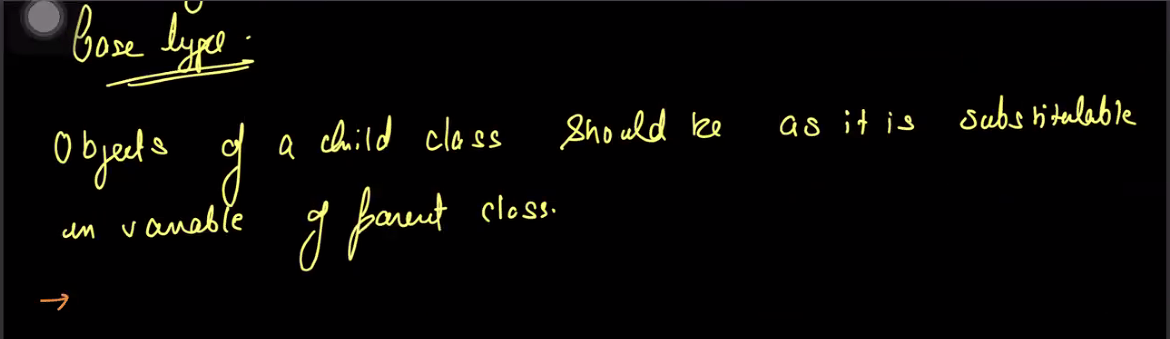 base type.
Objects of a child class should be as it is substitutable
in variable of parent class.
→